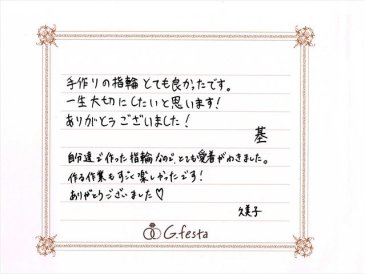 手作りの指輪とても良かったです。
一生大切にしたいと思います!
ありがとうございました!
基
自分達で作った指輪なので、とても愛着がわきました。
作る作業もすごく楽しかったです!
ありがとうございました♡
久美子
G.festa